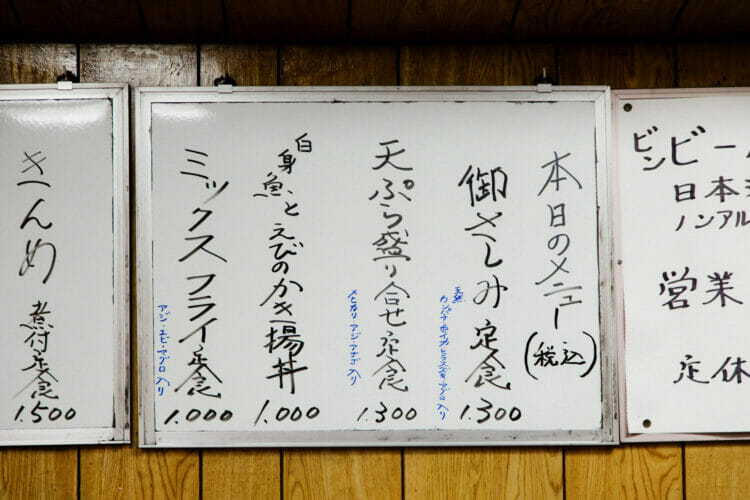 本日のメニュー(税込)
御さしみ定食
1.300
天ぷら盛り合せ定食
メヒカリ アジ アナゴ入り
1.300
白身魚とえびのかき揚丼
1.000
ミックスフライ定食
アジ・エビ・マグロ入り
1.000
きんめ煮付定食
1.500
ビン
日本
ノンアル
営業
定休